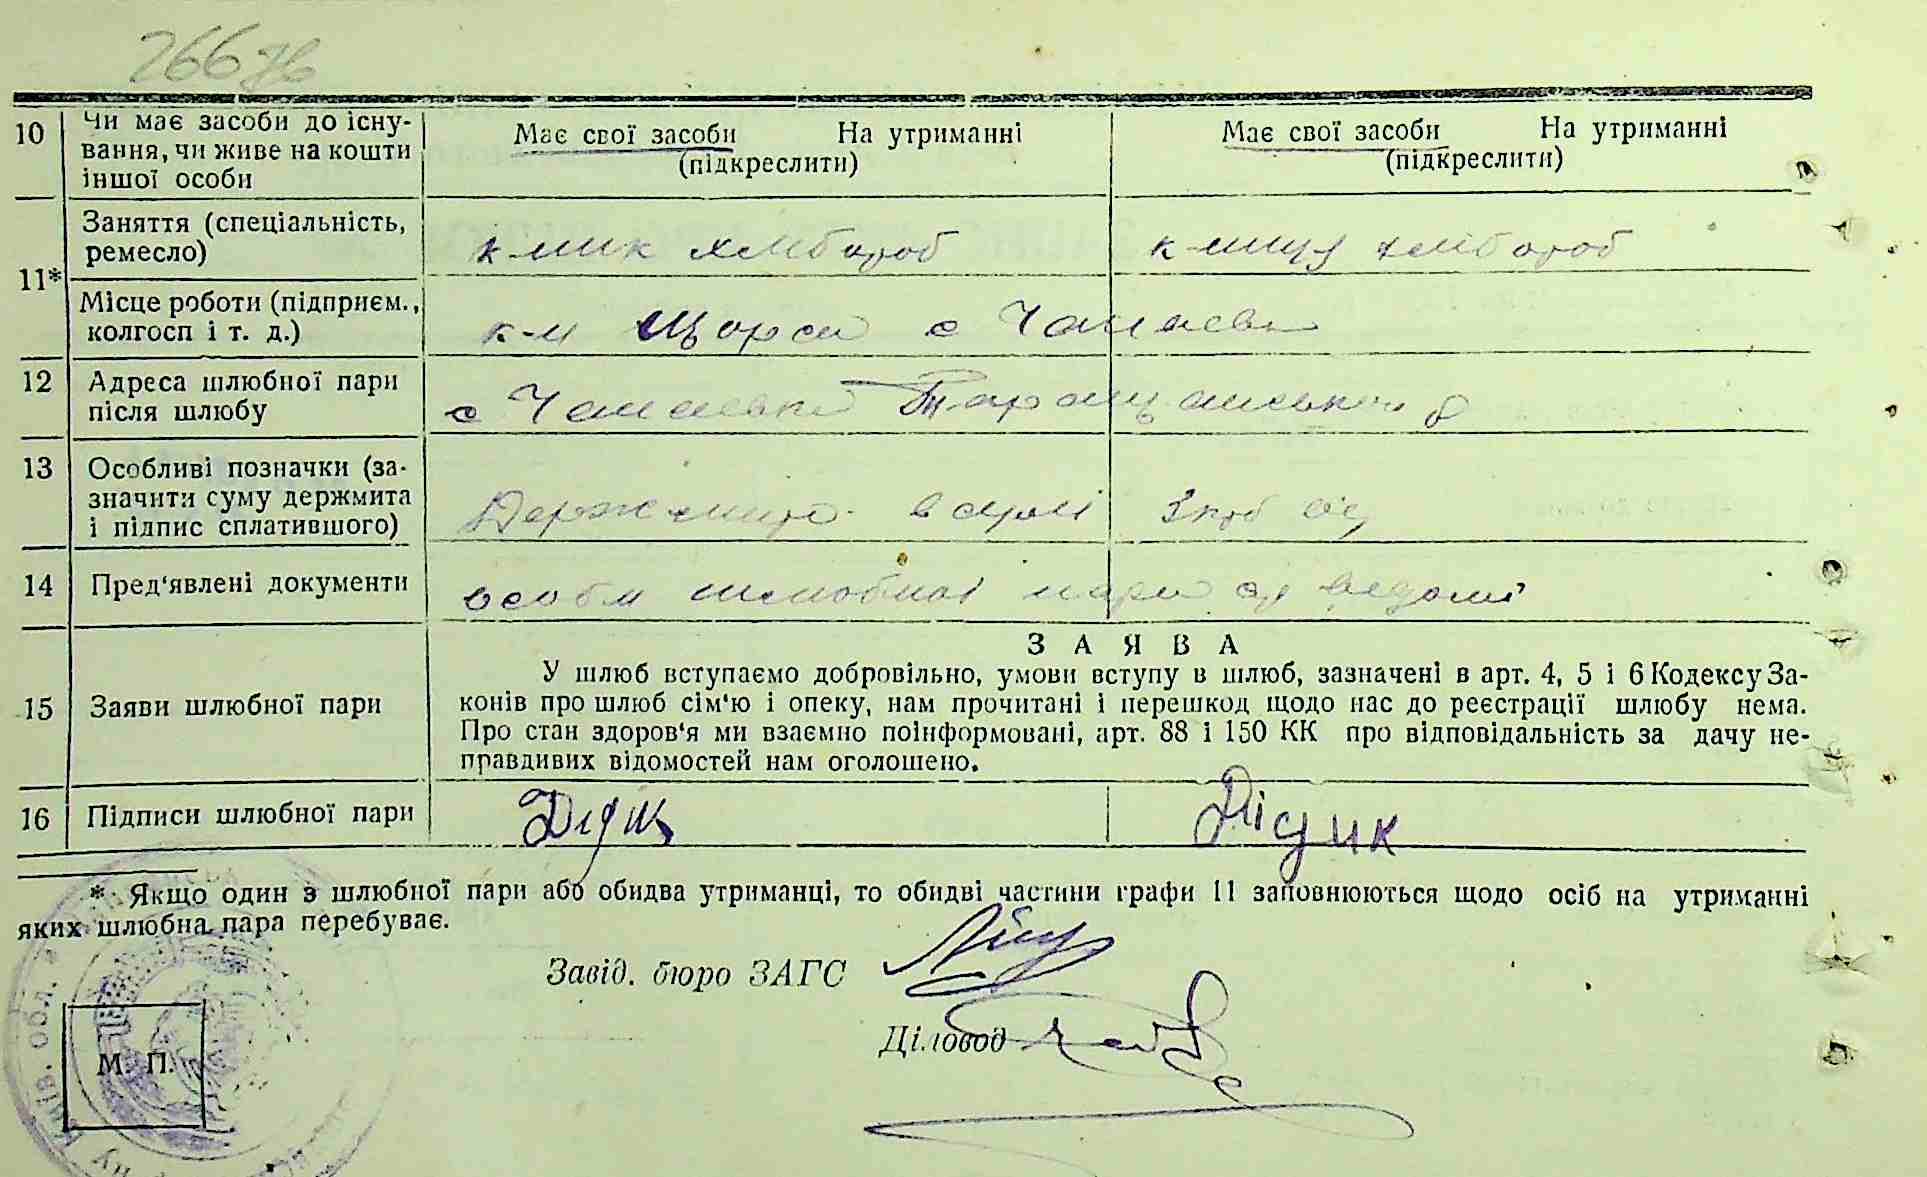 266 зв
10 Чи має засоби до існу-
вання, чи живе на кошти
іншої особи
Має свої засоби На утриманні
(підкреслити)
Має свої засоби На утриманні
(підкреслити)
11* Заняття (спеціальність,
ремесло)
к-ник хлібороб
к-ниця хлібороб
Місце роботи (підприєм.,
колгосп і т. д.)
к-п Щорса с Чапаєвка
12 Адреса шлюбної пари
після шлюбу
с Чапаєвка Таращанського р
13 Особливі позначки (за-
значити суму держмита
і підпис сплатившого)
Держмито в сумі 3 крб
14 Пред'явлені документи
особи шлюбної пари відомі
15 Заяви шлюбної пари
ЗАЯВА
У шлюб вступаємо добровільно, умови вступу в шлюб, зазначені в арт. 4, 5 і 6 Кодексу За-
конів про шлюб сім'ю і опеку, нам прочитані і перешкод щодо нас до реєстрації шлюбу нема.
Про стан здоров'я ми взаємно поінформовані, арт. 88 і 150 КК про відповідальність за дачу не-
правдивих відомостей нам оголошено.
16 Підписи шлюбної пари
Дідик
Дідик
* Якщо один з шлюбної пари або обидва утриманці, то обидві частини графи 11 заповнюються щодо осіб на утриманні
яких шлюбна пара перебуває.
Завід. бюро ЗАГС
Діловод
М. П.
Київ. обл.